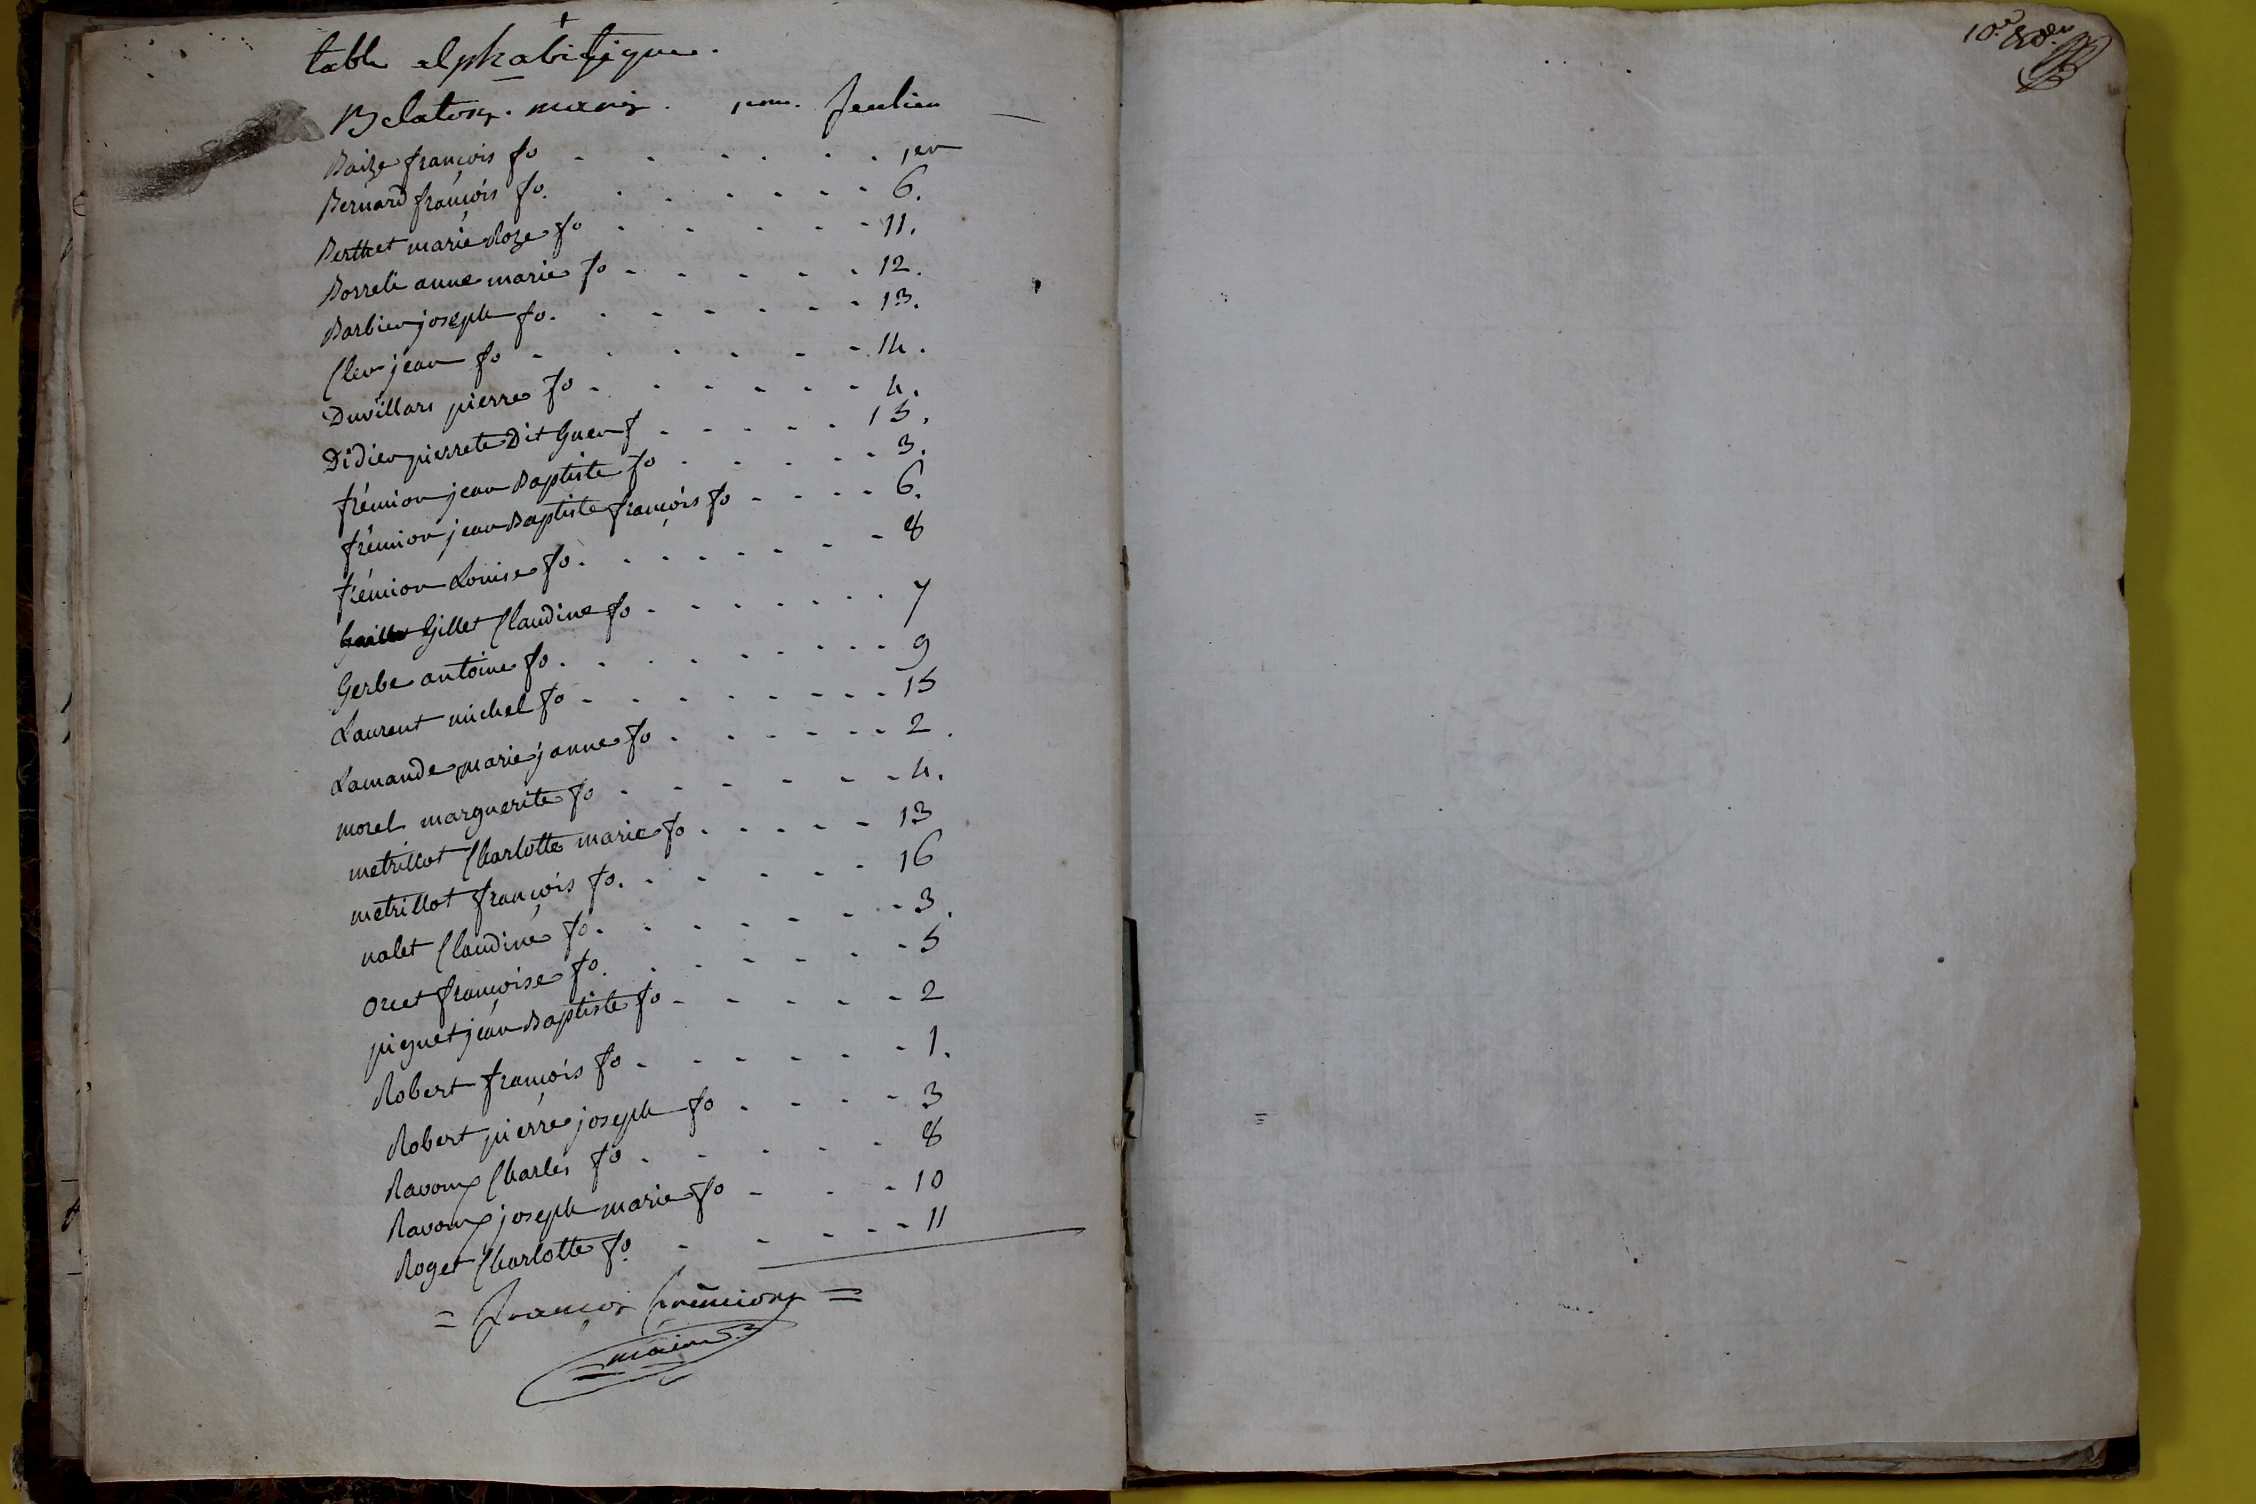 table alphabitique.
Belaton marie. pm. feulien
Baize françois fo . . . . . . . 1er
Bernard françois fo. . . . . . . 6.
Berthet marie Roze fo . . . . . . 11.
Borrel anne marie fo . . . . . 12.
Barbier joseph fo. . . . . . . 13.
Cler jean fo . . . . . . . 14.
Duvillars pierre fo . . . . . . . 4.
Didier pierrete Dit Guer f . . . . . 15.
frémion jean Baptiste fo . . . . . 3.
frémion jean Baptiste françois fo . . . . 6.
frémion Louise fo. . . . . . . . 8
Gillet Claudine fo . . . . . . . 7
Gerbe antoine fo. . . . . . . . . 9
Laurent michel fo . . . . . . . . 15
Lamande marie janne fo . . . . . . 2.
morel marguerite fo . . . . . . 4.
metrillot Charlotte marie fo . . . . . 13
metrillot françois fo. . . . . . . 16
nalet Claudine fo. . . . . . . . 3.
orcet françoise fo. . . . . . . . 5
piquet jean Baptiste fo . . . . . . 2
Robert françois fo . . . . . . . 1.
Robert pierre joseph fo . . . . 3
Ravoux Charles fo . . . . . . 8
Ravoux joseph marie fo . . . 10
Roget Charlotte fo . . . . . 11
= françois frèmion =
maire
10.e